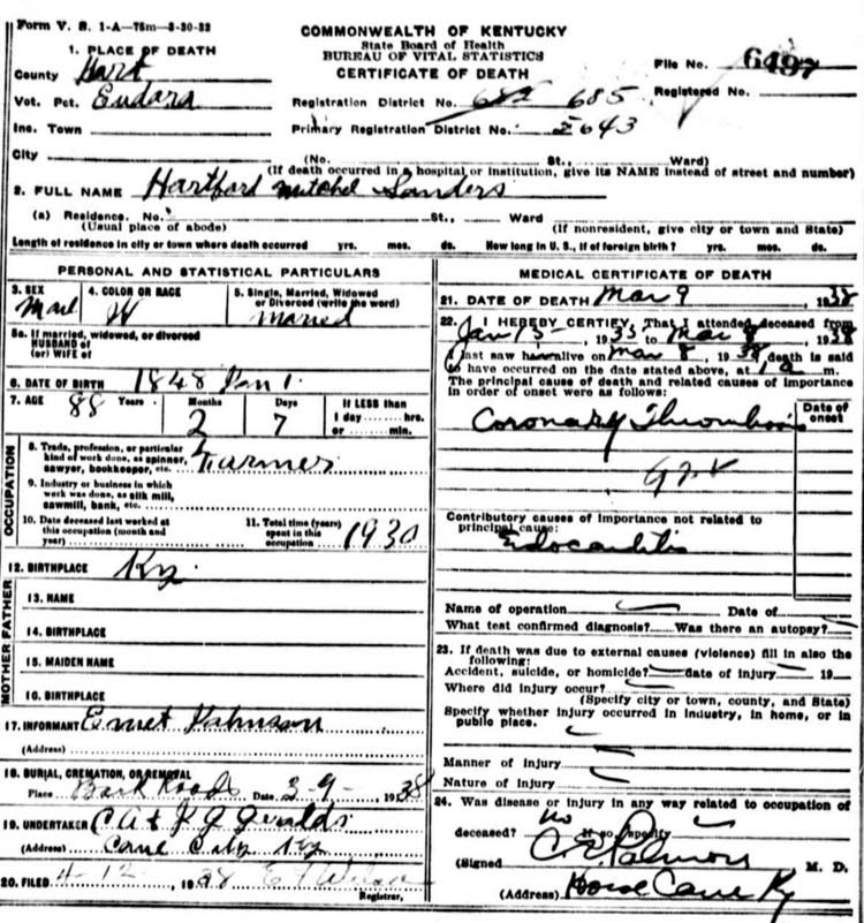 Form V. S. 1-A—75m—3-30-33
COMMONWEALTH OF KENTUCKY
State Board of Health
BUREAU OF VITAL STATISTICS
CERTIFICATE OF DEATH
File No. 6497
Registered No.
1. PLACE OF DEATH
County Hart
Vot. Pct. Eudora
Registration District No. 685
Inc. Town
Primary Registration District No. 643
City
(No. St., Ward)
(If death occurred in a hospital or institution, give its NAME instead of street and number)
2. FULL NAME Hartford Mitchel Sanders
(a) Residence. No. St., Ward
(Usual place of abode) (If nonresident, give city or town and State)
Length of residence in city or town where death occurred yrs. mos. ds. How long in U. S., if of foreign birth? yrs. mos. ds.
PERSONAL AND STATISTICAL PARTICULARS
3. SEX Mail
4. COLOR OR RACE W
5. Single, Married, Widowed or Divorced (write the word)
Maried
5a. If married, widowed, or divorced
HUSBAND of
(or) WIFE of
6. DATE OF BIRTH 1848 Jan 1
7. AGE 88 Years Months 2 Days 7 If LESS than
1 day hrs.
or min.
OCCUPATION
8. Trade, profession, or particular
kind of work done, as spinner,
sawyer, bookkeeper, etc. Farmer
9. Industry or business in which
work was done, as silk mill,
sawmill, bank, etc.
10. Date deceased last worked at
this occupation (month and
year)
11. Total time (years)
spent in this
occupation 1930
12. BIRTHPLACE Ky.
FATHER
13. NAME
14. BIRTHPLACE
MOTHER
15. MAIDEN NAME
16. BIRTHPLACE
17. INFORMANT Emet
(Address)
18. BURIAL, CREMATION, OR REMOVAL
Place Date 3-9- 1938
19. UNDERTAKER C A & J G
(Address) Cave City Ky
20. FILED 4-12, 1938
Registrar,
MEDICAL CERTIFICATE OF DEATH
21. DATE OF DEATH Mar 9, 1938
22. I HEREBY CERTIFY, That I attended deceased from
Jan 15-, 1935 to Mar 8, 1938
I last saw him alive on Mar 8, 1938, death is said
to have occurred on the date stated above, at 1 a m.
The principal cause of death and related causes of importance
in order of onset were as follows:
Date of
onset
Coronary Thrombosis
Contributory causes of importance not related to
principal cause:
Endocarditis
Name of operation Date of
What test confirmed diagnosis? Was there an autopsy?
23. If death was due to external causes (violence) fill in also the
following:
Accident, suicide, or homicide? date of injury 19
Where did injury occur?
(Specify city or town, county, and State)
Specify whether injury occurred in industry, in home, or in
public place.
Manner of injury
Nature of injury
24. Was disease or injury in any way related to occupation of
deceased? no If so, specify
(Signed) C E Palmore M. D.
(Address) Horse Cave Ky